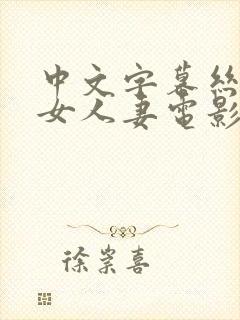 中文字幕絲
女人妻電影
徐崇喜